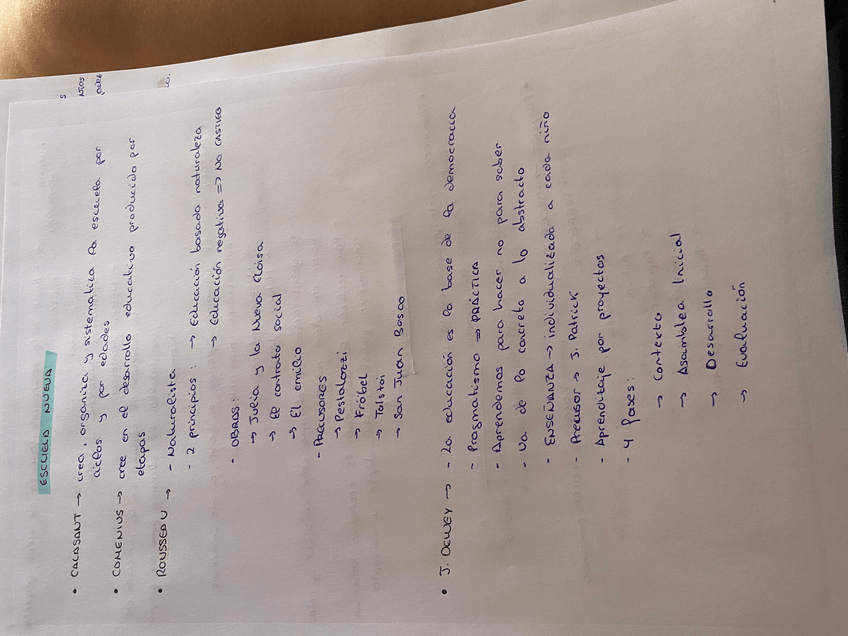 ESCUELA NUEVA
• CALASANT → crea, organiza y sistematiza la escuela por
ciclos y por edades
• COMENIUS → cree en el desarrollo educativo producido por
etapas
• ROUSSEAU → - Naturalista
- 2 principios: → Educación basada naturaleza
→ Educación negativa => NO CASTIGO
- OBRAS:
→ Julia y la Nueva Eloisa
→ El contrato social
→ El emilio
- PRECUSORES
→ Pestalozzi
→ Fröbel
→ Tolstoi
→ San Juan Bosco
• J. DEWEY → - La educación es la base de la democracia
- Pragmatismo => PRÁCTICA
- Aprendemos para hacer no para saber
- Va de lo concreto a lo abstracto
- ENSEÑANZA → individualizada a cada niño
- Precusor → J. Patrick
- Aprendizaje por proyectos
- 4 fases:
→ Contexto
→ Asamblea Inicial
→ Desarrollo
→ Evaluación